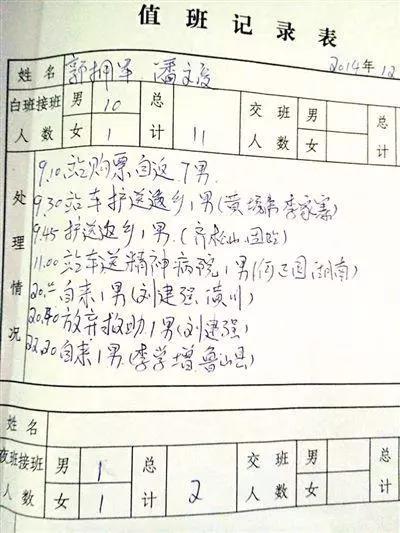 值班记录表
2014年12
姓名 郭拥军 潘文凌
白班接班人数 男 10 女 1 总计 11 交班人数 男 女 总计
处理情况
9.10站购票自返7男.
9.30站车护送返乡1男(黄 李家寨)
9.45护送返乡1男.(齐松山 固始)
11.00站车送精神病院1男(何 国 湖南)
20. 自来1男(刘建强 潢川)
20.40放弃救助1男(刘建强)
22.20自来1男(李学增 鲁山县)
姓名
夜班接班人数 男 1 女 1 总计 2 交班人数 男 女 总计